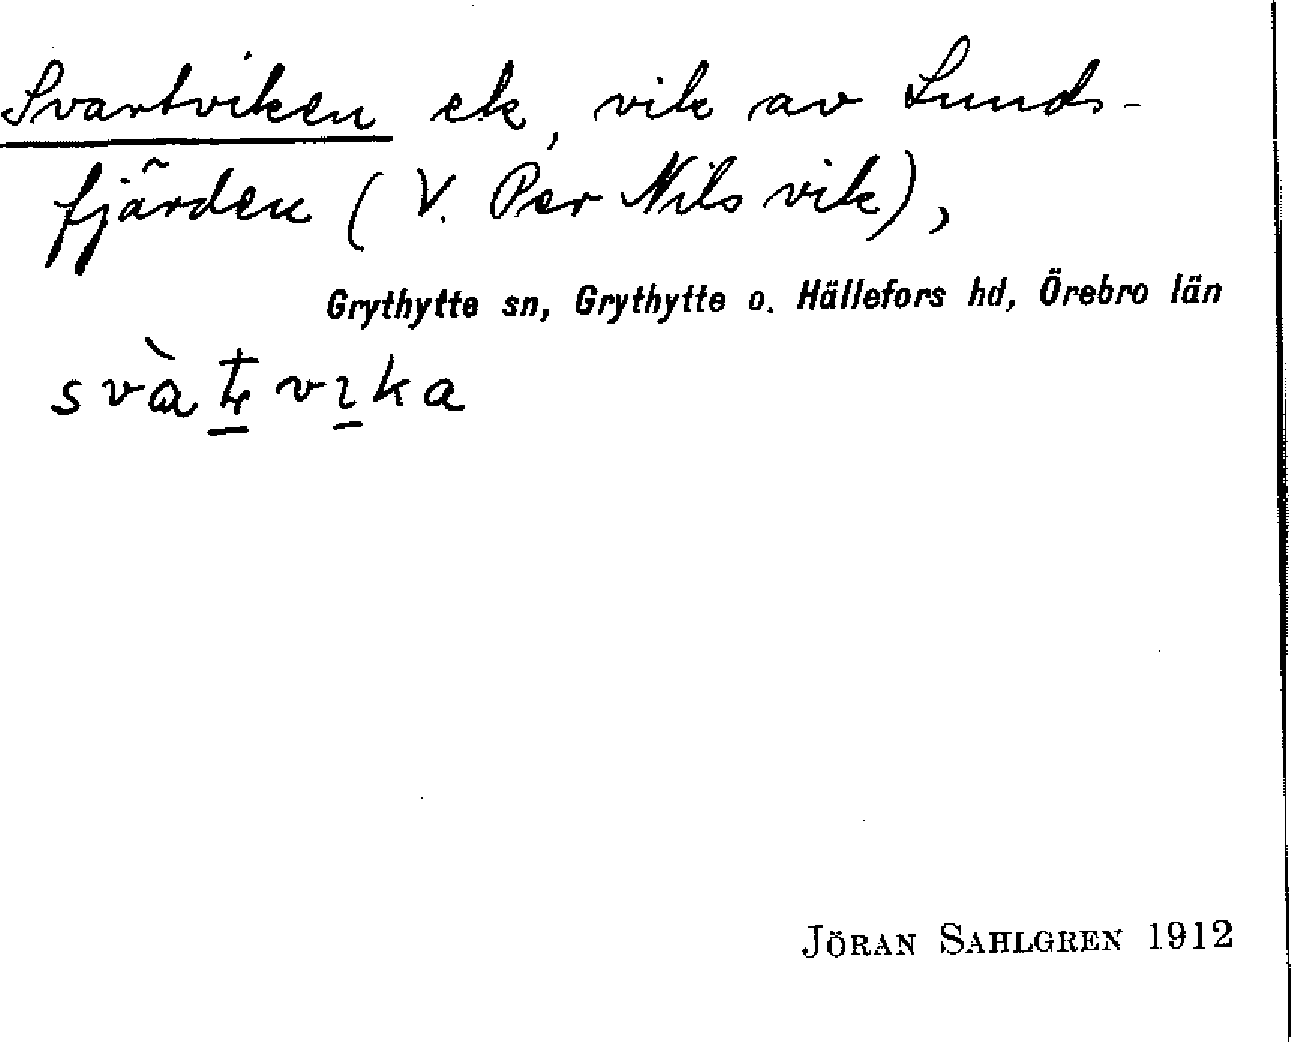 Svartviken ek, vik av Lunds-
fjärden (V. Per Nils vik),
Grythytte sn, Grythytte o. Hällefors hd, Örebro län
JÖRAN SAHLGREN 1912